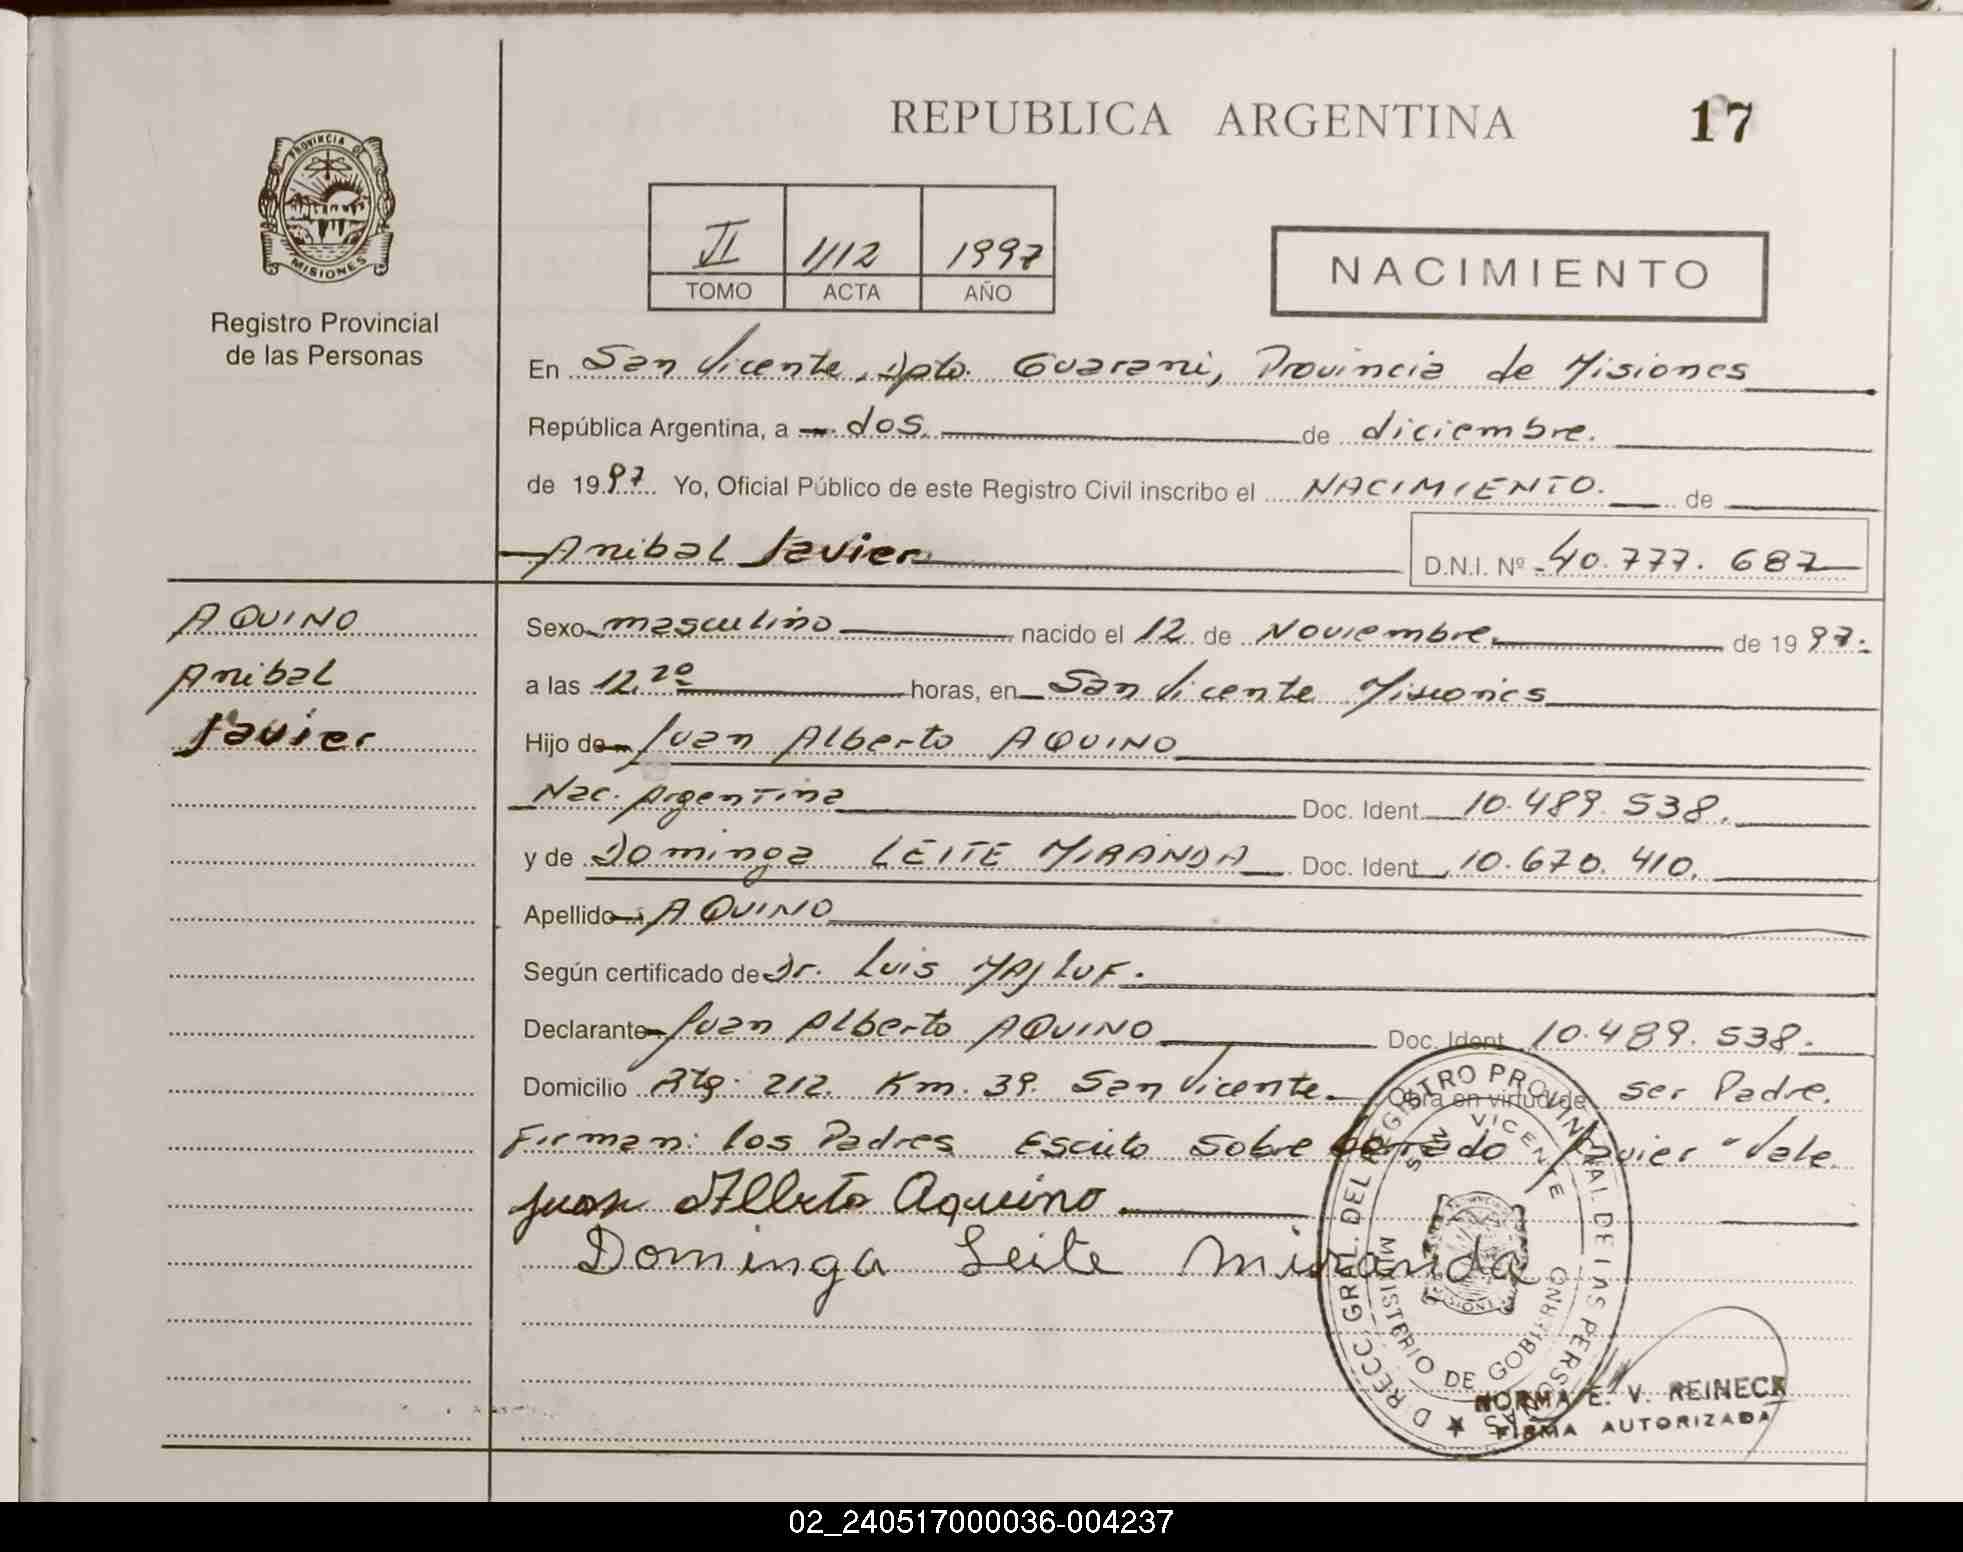 REPUBLICA ARGENTINA
17
PROVINCIA DE
MISIONES
Registro Provincial
de las Personas
II 1112 1997
TOMO ACTA AÑO
NACIMIENTO
En San Vicente, Dpto. Guarani, Provincia de Misiones
República Argentina, a dos de diciembre.
de 1997. Yo, Oficial Público de este Registro Civil inscribo el NACIMIENTO. de
Anibal Javier
D.N.I. Nº 40.777.687
AQUINO
Anibal
Javier
Sexo masculino nacido el 12 de Noviembre de 1997.
a las 12,20 horas, en San Vicente Misiones
Hijo de Juan Alberto AQUINO
Nac. Argentina Doc. Ident. 10.489.538.
y de Dominga LEITE MIRANDA Doc. Ident. 10.670.410.
Apellido AQUINO
Según certificado de Dr. Luis MAJLUF.
Declarante Juan Alberto AQUINO Doc. Ident. 10.489.538.
Domicilio Rta. 212. Km. 39. San Vicente. Obra en virtud de ser Padre.
Firman: los Padres Escrito sobre borrado Javier "Vale.
Juan Alberto Aquino
Dominga Leite Miranda
DIRECC. GRAL. DEL REGISTRO PROVINCIAL DE LAS PERSONAS
SAN VICENTE
MINISTERIO DE GOBIERNO
NORMA E. V. REINECK
FIRMA AUTORIZADA
02_240517000036-004237